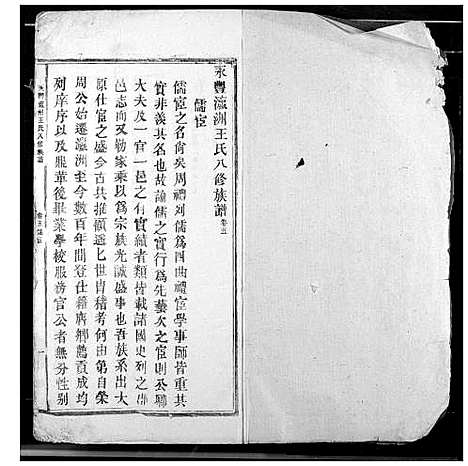 永豐瀛洲王氏八修族譜 卷三
儒宦
儒宦之名尚矣周禮列儒為四曲禮宦學事師皆重其
實非羨其名也故論儒之實行為先藝次之宦則公卿
大夫及一官一邑之有實績者類皆載諸國史列之
邑志而又勒家乘以為宗族光誠盛事也吾族系出太
原仕宦之盛今古共仰遙遙七世有稽考何由第自榮
周公始遷瀛洲至今數百年間登仕籍膺鄉薦貢成均
列庠序以及服畢後畢業學校服務官公者無分性別
永豐瀛洲王氏八修族譜
卷三 儒宦
一